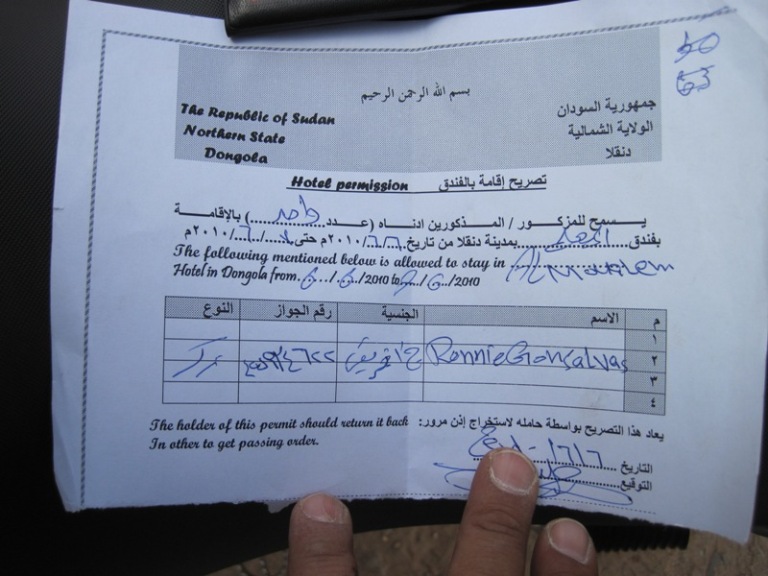 50
63
بسم الله الرحمن الرحيم
The Republic of Sudan
Northern State
Dongola
جمهورية السودان
الولاية الشمالية
دنقلا
Hotel permission تصريح إقامة بالفندق
يسمح للمزكور / المذكورين ادناه (عدد واحد) بالإقامة
بفندق المعلم بمدينة دنقلا من تاريخ ٦/٦/٢٠١٠م حتى /٦/٢٠١٠م
The following mentioned below is allowed to stay in Al Mualem
Hotel in Dongola from 6/6/2010 to /6/2010
م الاسم الجنسية رقم الجواز النوع
١
٢ Ronnie Gonsalvas ج/افريقي ذكر
٣
٤
يعاد هذا التصريح بواسطة حامله لاستخراج إذن مرور:
The holder of this permit should return it back
In other to get passing order.
التاريخ
التوقيع